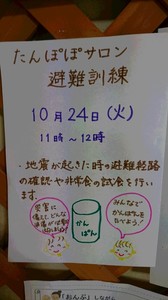 たんぽぽサロン
避難訓練
10月24日(火)
11時〜12時
・地震が起きた時の避難経路
の確認や非常食の試食を行い
ます。
災害に
備えて、どんな
かん
ぱん
みんなで
かんぱんを
たべよう!